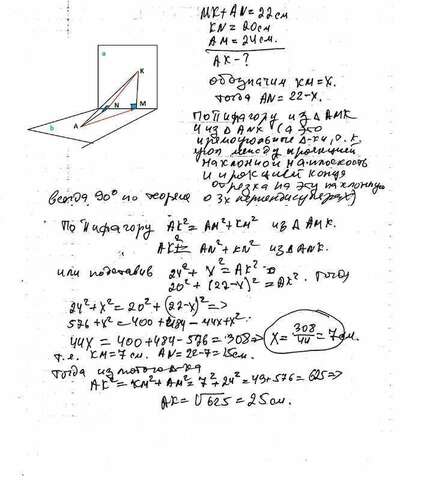 a
K
N
M
A
b
MK+AN=22см
KN=20см
AM=24см.
AK-?
обозначим KM=X.
тогда AN=22-X.
По Пифагору из △AMK
и из △ANK (а это
прямоугольные △-ки, т.к.
угол между проекцией
наклонной на плоскость
и проекцией конца
отрезка на эту наклонную
всегда 90° по теореме о 3х перпендикулярах)
По Пифагору AK²=AM²+KM² из △AMK.
AK²=AN²+KN² из △ANK.
или подставив 24²+X²=AK²
20²+(22-X)²=AK². Тогда
24²+X²=20²+(22-X)²=>
576+X²=400+484-44X+X²
44X=400+484-576=308=> X=308/44=7см.
т.е. KM=7см. AN=22-7=15см.
Тогда из
AK²=KM²+AM²=7²+24²=49+576=625=>
AK=√625=25см.